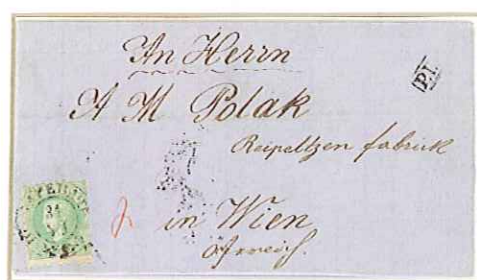 An Herrn
P.I.
A M Polak
Reipeltzen fabrick
in Wien